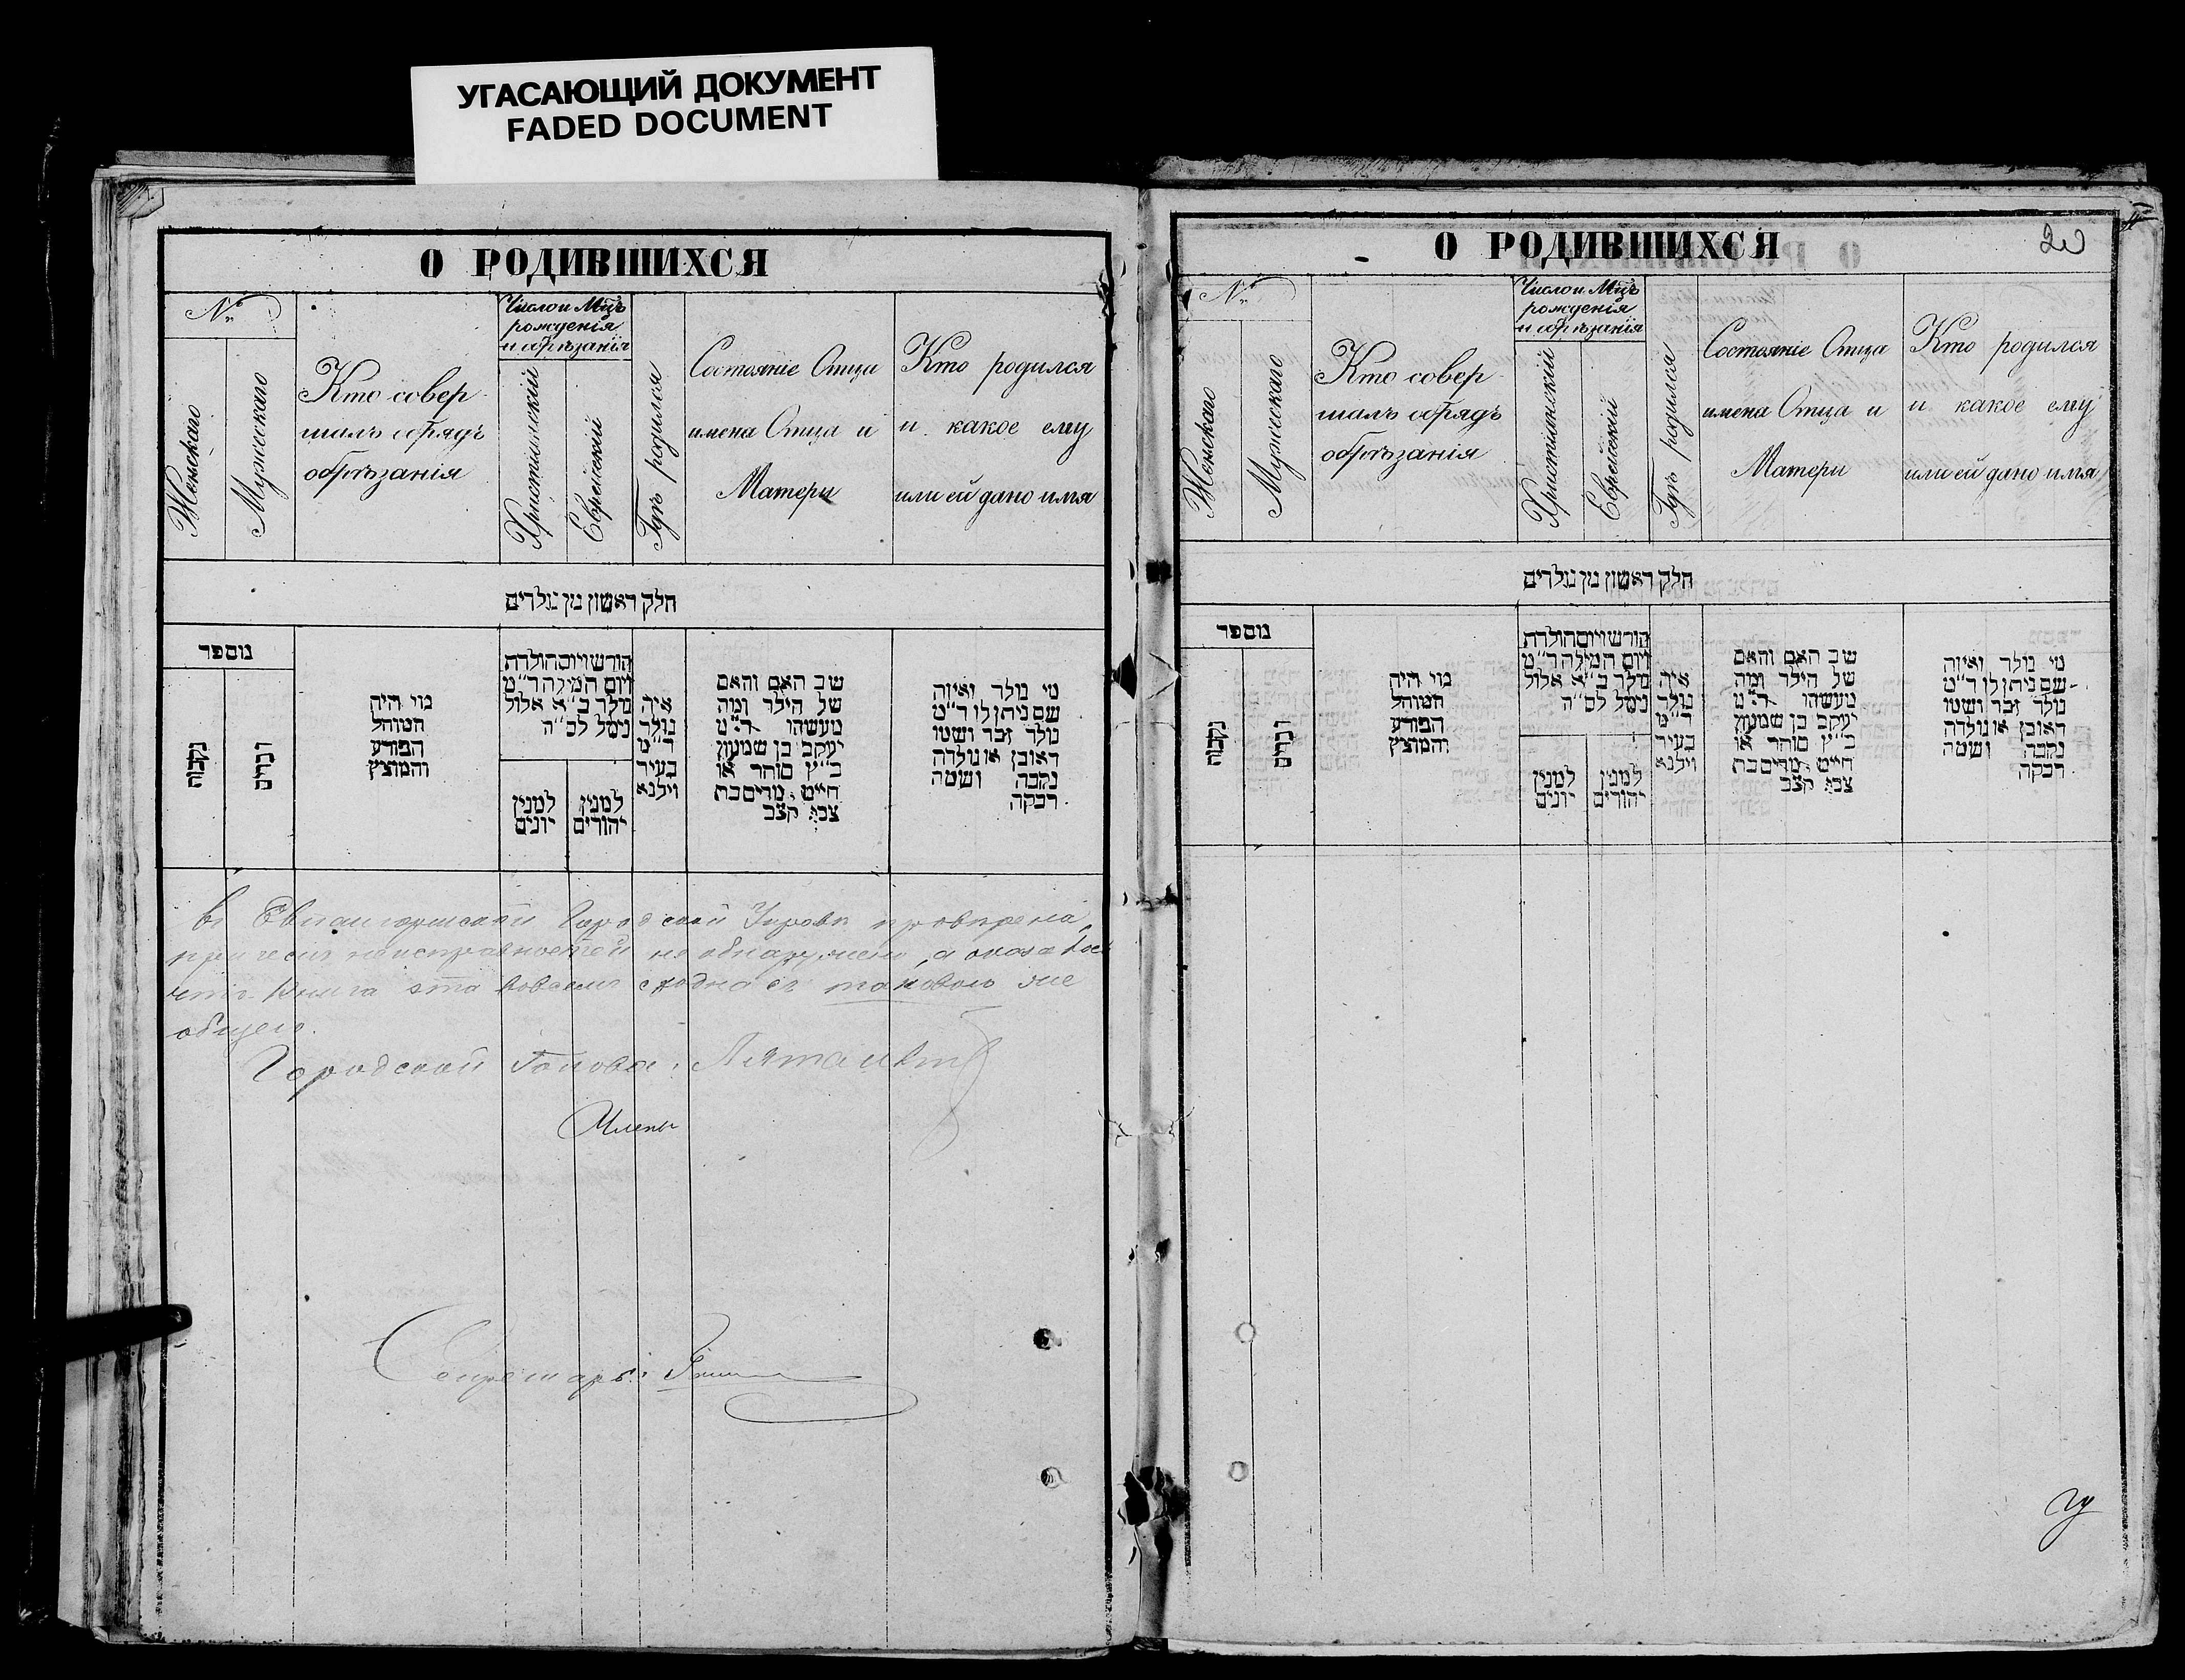 УГАСАЮЩИЙ ДОКУМЕНТ
FADED DOCUMENT
О РОДИВШИХСЯ
№
Женскаго
Мужескаго
Кто совер
шалъ обрядъ
обрѣзанія
Число и Мцъ
рожденія
и обрѣзанія
Христіанскій
Еврейскій
Гдѣ родился
Состояніе Отца
имена Отца и
Матери
Кто родился
и какое ему
или ей дано имя
חלק ראשון מן נולדים
מספר
נקבות
זכרים
מי היה
המוהל
הפורע
והמוצץ
חודש ויום הולדת
ויום המילה ר"מ
נולד ב"א אלול
נימל לס"ה
למנין
יונים
למנין
יהודים
איה
נולד
ד"מ
בעיר
וילנא
שב האם והאם
של הילד ומה
מעשהו ד"מ
יעקב בן שמעון
כ"ץ סוחר או
חייט מרים בת
צבי קצב
מי נולד ואיזה
שם ניתן לו ד"מ
נולד זכר ושמו
ראובן או נולדה
נקבה ושמה
רבקה
въ Городской Управѣ провѣрена,
при чемъ неисправностей не обнаружено, а оказалось
что книга эта вовсемъ сходна съ таковою же
общею.
Городской Голова:
Члены
Секретарь:
О РОДИВШИХСЯ
20
№
Женскаго
Мужескаго
Кто совер
шалъ обрядъ
обрѣзанія
Число и Мцъ
рожденія
и обрѣзанія
Христіанскій
Еврейскій
Гдѣ родился
Состояніе Отца
имена Отца и
Матери
Кто родился
и какое ему
или ей дано имя
חלק ראשון מן נולדים
מספר
נקבות
זכרים
מי היה
המוהל
הפורע
והמוצץ
חודש ויום הולדת
ויום המילה ר"מ
נולד ב"א אלול
נימל לס"ה
למנין
יונים
למנין
יהודים
איה
נולד
ד"מ
בעיר
וילנא
שב האם והאם
של הילד ומה
מעשהו ד"מ
יעקב בן שמעון
כ"ץ סוחר או
חייט מרים בת
צבי קצב
מי נולד ואיזה
שם ניתן לו ד"מ
נולד זכר ושמו
ראובן או נולדה
נקבה ושמה
רבקה